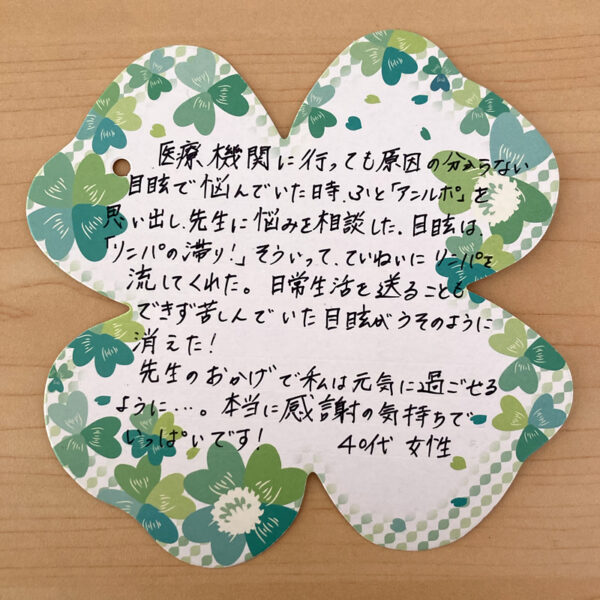 医療機関に行っても原因の分からない
目眩で悩んでいた時、ふと「アンルポ」を
思い出し、先生に悩みを相談した。目眩は、
「リンパの滞り!」そういって、ていねいにリンパを
流してくれた。日常生活を送ることも
できず苦しんでいた目眩がうそのように
消えた!
先生のおかげで私は元気に過ごせる
ように…。本当に感謝の気持ちで
いっぱいです!
40代 女性